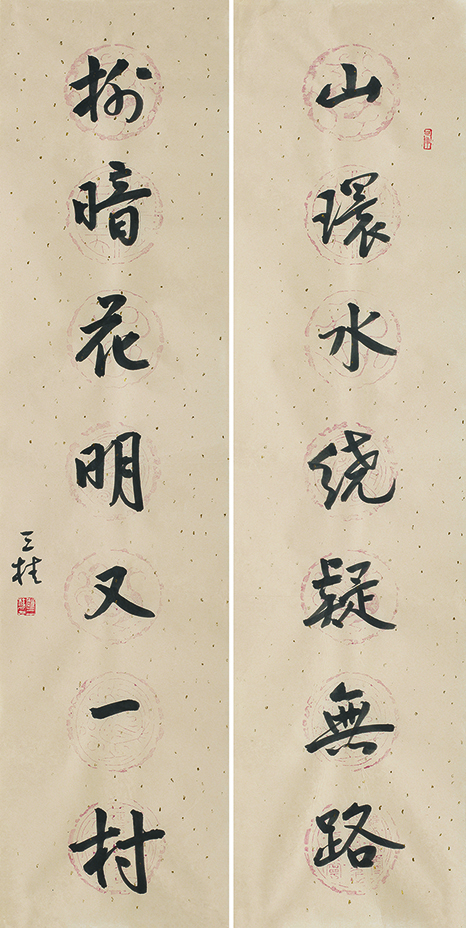 山環水绕疑無路
柳暗花明又一村
三桂